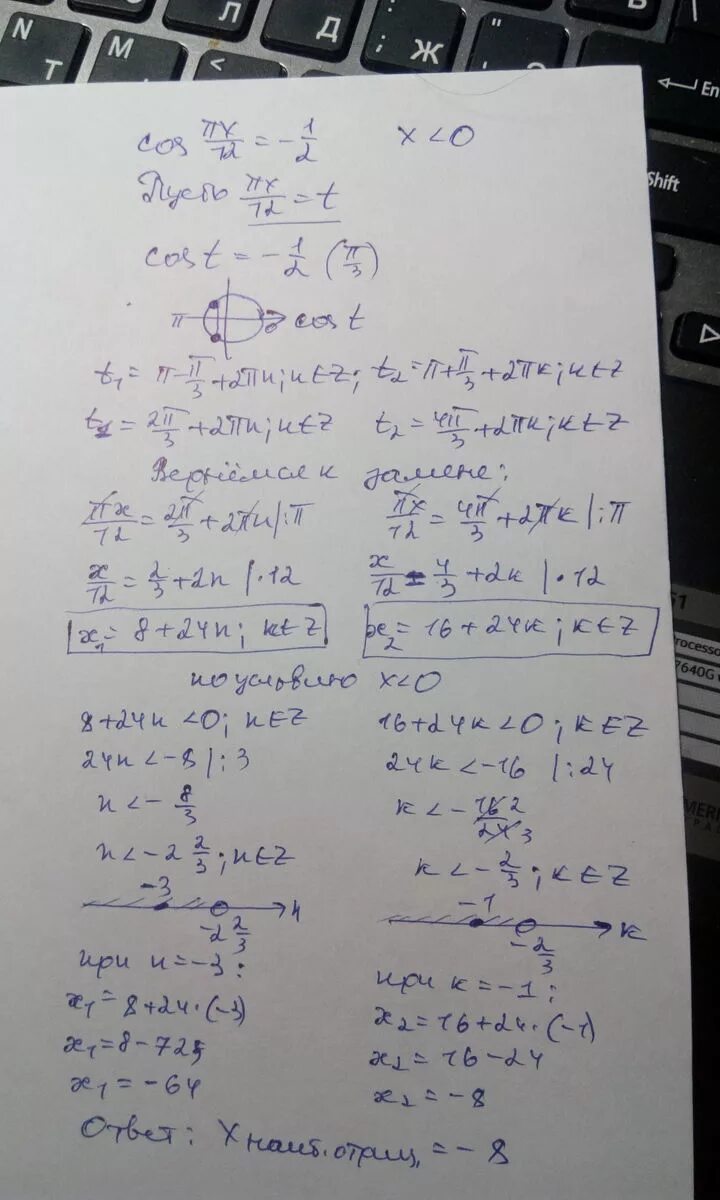 N
Т
М
<
Л
Д
;
Ж
"
En
Shift
cos πx/12 = -1/2    x < 0
Пусть πx/12 = t
cos t = -1/2 (π/3)
π 0 cos t
t₁ = π - π/3 + 2πn; n∈Z; t₂ = π + π/3 + 2πk; k∈Z
t₁ = 2π/3 + 2πn; n∈Z    t₂ = 4π/3 + 2πk; k∈Z
Вернёмся к замене:
πx/12 = 2π/3 + 2πn |:π    πx/12 = 4π/3 + 2πk |:π
x/12 = 2/3 + 2n |·12    x/12 = 4/3 + 2k |·12
x₁ = 8 + 24n; k∈Z    x₂ = 16 + 24k; k∈Z
по условию x<0
8+24n <0; n∈Z    16+24k <0; k∈Z
24n < -8 |:3    24k < -16 |:24
n < - 8/3    k < - 16/24 2/3
n < -2 2/3; n∈Z    k < - 2/3; k∈Z
-3    -1
n    k
-2 2/3    - 2/3
при n = -3:    при k = -1:
x₁ = 8+24·(-3)    x₂ = 16+24·(-1)
x₁ = 8 - 72;    x₂ = 16 - 24
x₁ = -64    x₂ = -8
Ответ: X наиб.отриц. = -8
G1
Processo
7640G